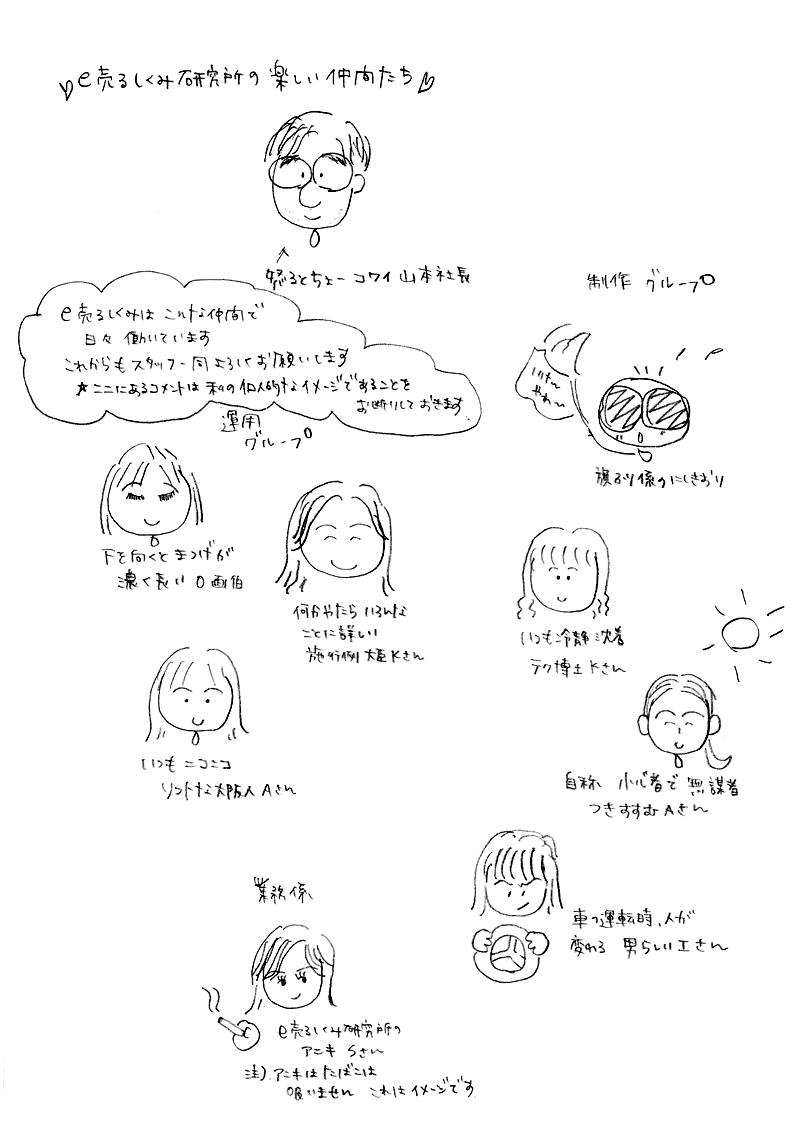 ♡e売るしくみ研究所の楽しい仲間たち♡
怒るとちょーコワイ山本社長
e売るしくみはこんな仲間で
日々働いています
これからもスタッフ一同よろしくお願いします
★ここにあるコメントは私の個人的なイメージであることを
お断りしておきます
制作グループ
旗ふり係のにしきおり
運用
グループ
下を向くとまつげが
濃く長いO画伯
何かやたらいろんな
ことに詳しい
施行例大臣Kさん
いつも冷静沈着
テク博士Kさん
いつもニコニコ
ソフトな大阪人Aさん
自称 小心者で無謀者
つきすすむAさん
業務係
車の運転時、人が
変わる 男らしいIさん
e売るしくみ研究所の
アニキ Sさん
注).アニキはたばこは
吸いません これはイメージです